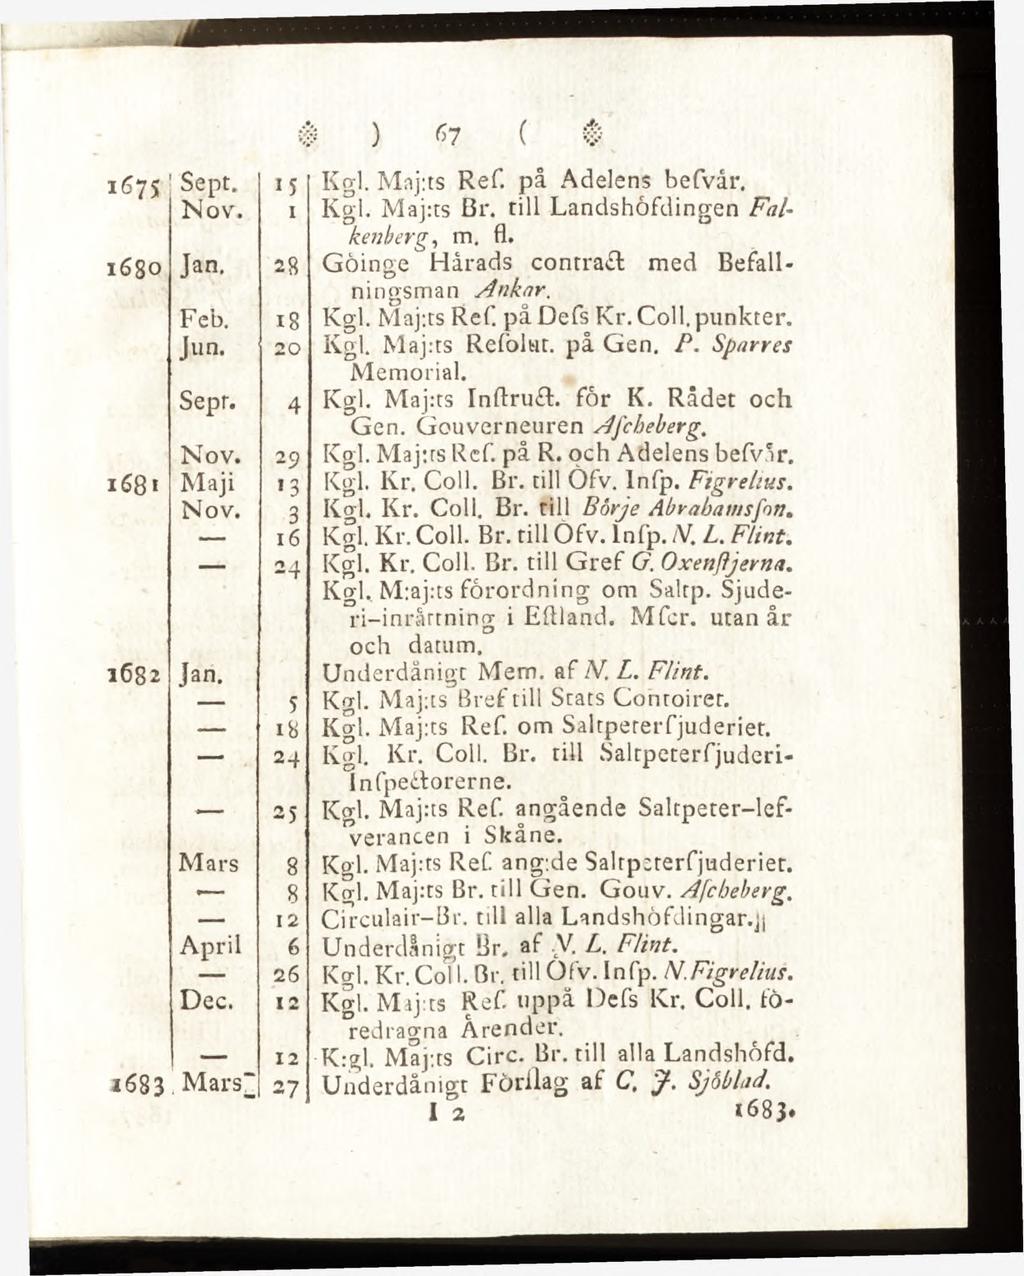 ) 67 (
1675 Sept. 15 Kgl. Maj:ts Reſ. på Adelens beſvår.
Nov. 1 Kgl. Maj:ts Br. till Landshôfdingen Fal-
kenberg, m. fl.
1680 Jan. 28 Gôinge Hårads contract med Befall-
ningsman Ankar.
Feb. 18 Kgl. Maj:ts Reſ. på Deſs Kr. Coll. punkter.
Jun. 20 Kgl. Maj:ts Reſolut. på Gen. P. Sparres
Memorial.
Sept. 4 Kgl. Maj:ts Inſtruct. fôr K. Rådet och
Gen. Gouverneuren Aſcheberg.
Nov. 29 Kgl. Maj:ts Reſ. på R. och Adelens beſvår.
1681 Maji 13 Kgl. Kr. Coll. Br. till Ôfv. Inſp. Figrelius.
Nov. 3 Kgl. Kr. Coll. Br. till Bôrje Abrahamsſon.
— 16 Kgl. Kr. Coll. Br. till Ôfv. Inſp. N. L. Flint.
— 24 Kgl. Kr. Coll. Br. till Gref G. Oxenſtjerna.
Kgl. M:aj:ts fôrordning om Saltp. Sjude-
ri-inråttning i Eſtland. Mſcr. utan år
och datum.
1682 Jan. Underdånigt Mem. af N. L. Flint.
— 5 Kgl. Maj:ts Bref till Stats Contoiret.
— 18 Kgl. Maj:ts Reſ. om Saltpeterſjuderiet.
— 24 Kgl. Kr. Coll. Br. till Saltpeterſjuderi-
Inſpectorerne.
— 25 Kgl. Maj:ts Reſ. angående Saltpeter-lef-
verancen i Skåne.
Mars 8 Kgl. Maj:ts Reſ. ang:de Saltpeterſjuderiet.
— 8 Kgl. Maj:ts Br. till Gen. Gouv. Aſcheberg.
— 12 Circulair-Br. till alla Landshôfdingar.
April 6 Underdånigt Br. af N. L. Flint.
— 26 Kgl. Kr. Coll. Br. till Ôfv. Inſp. N. Figrelius.
Dec. 12 Kgl. Maj:ts Reſ. uppå Deſs Kr. Coll. fô-
redragna Årender.
— 12 K:gl. Maj:ts Circ. Br. till alla Landshôfd.
1683 Mars 27 Underdånigt Fôrſlag af C. J. Sjôblad.
I 2 1683.